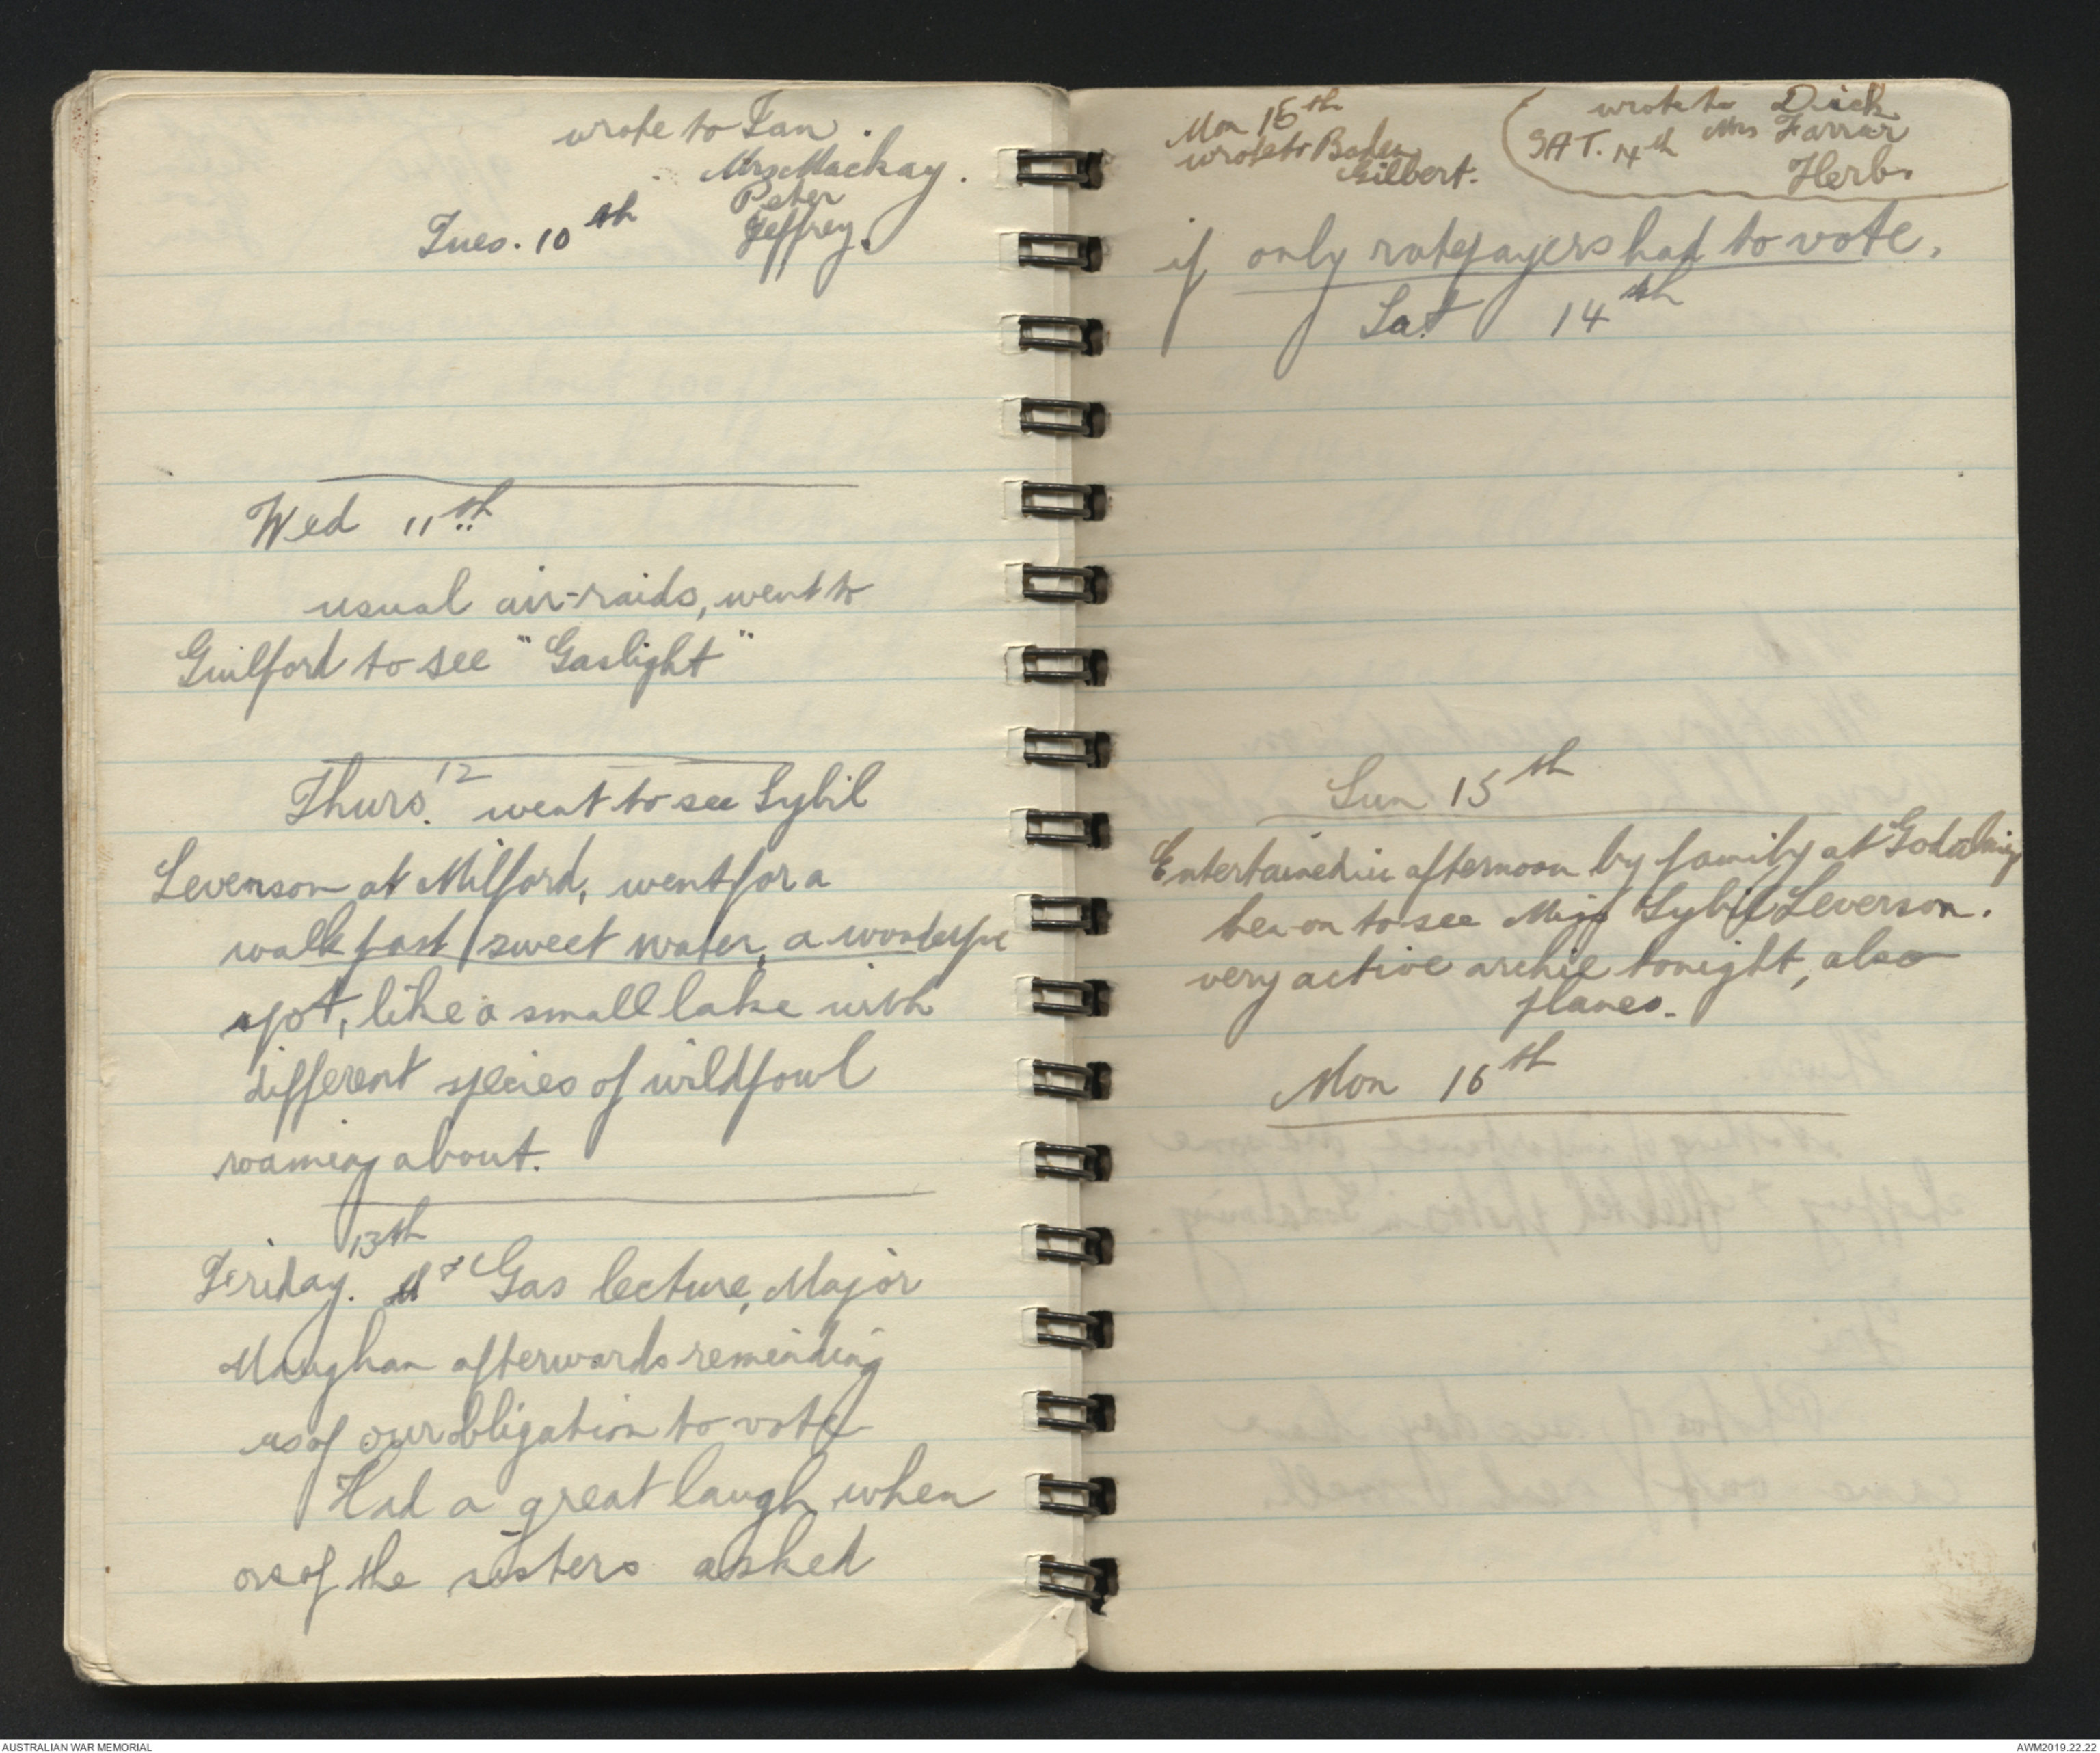 wrote to Ian.
Mrs Mackay.
Peter
Tues. 10th Jeffrey.
Wed 11th
usual air-raids, went to
Guilford to see "Gaslight"
Thurs. 12 went to see Sybil
Levenson at Milford, went for a
walk past sweet water, a wonderful
spot, like a small lake with
different species of wildfowl
roaming about.
13th
Friday. Gas lecture, Major
Maughan afterwards reminding
us of our obligation to vote
Had a great laugh when
one of the sisters asked
Mon 16th
wrote to
Gilbert.
wrote to Dick
SAT. 14th Mrs Farrar
Herb.
if only ratepayers had to vote.
Sat 14th
Sun 15th
Entertained in afternoon by family at Godalming
then on to see Miss Sybil Leverson.
very active archie tonight, also
planes.
Mon 16th
AUSTRALIAN WAR MEMORIAL
AWM2019.22.22